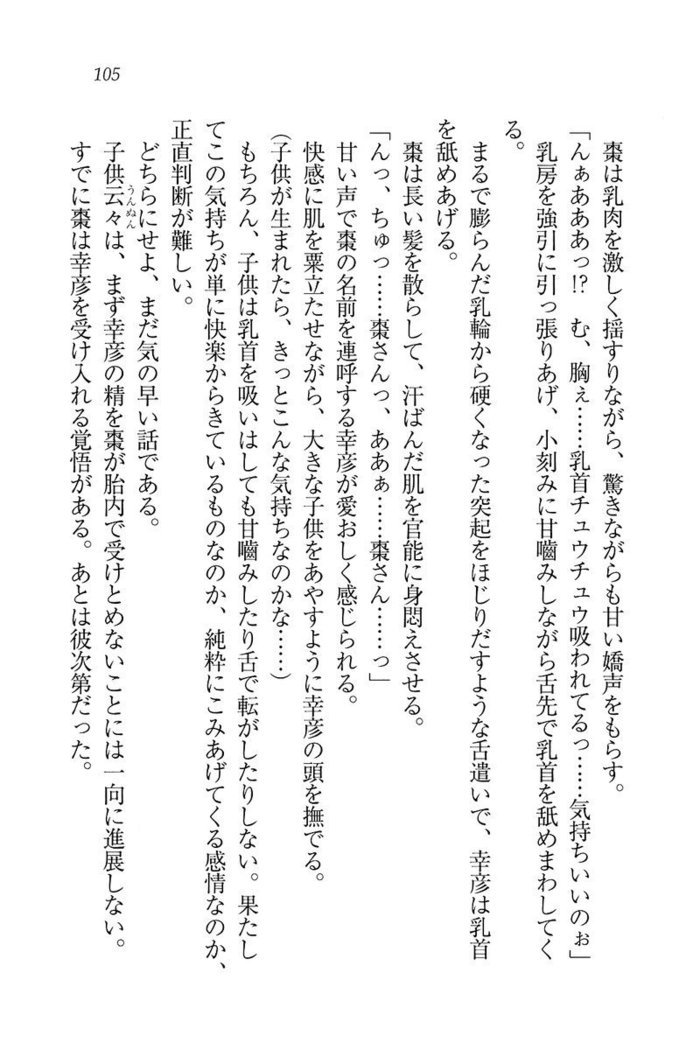 105
棗は乳肉を激しく揺すりながら、驚きながらも甘い嬌声をもらす。
「んぁあああっ!? む、胸ぇ……乳首チュウチュウ吸われてるっ……気持ちいいのぉ」
乳房を強引に引っ張りあげ、小刻みに甘嚙みしながら舌先で乳首を舐めまわしてく
る。
まるで膨らんだ乳輪から硬くなった突起をほじりだすような舌遣いで、幸彦は乳首
を舐めあげる。
棗は長い髪を散らして、汗ばんだ肌を官能に身悶えさせる。
「んっ、ちゅっ……棗さんっ、ああぁ……棗さん……っ」
甘い声で棗の名前を連呼する幸彦が愛おしく感じられる。
快感に肌を粟立たせながら、大きな子供をあやすように幸彦の頭を撫でる。
(子供が生まれたら、きっとこんな気持ちなのかな……)
もちろん、子供は乳首を吸いはしても甘嚙みしたり舌で転がしたりしない。果たし
てこの気持ちが単に快楽からきているものなのか、純粋にこみあげてくる感情なのか、
正直判断が難しい。
どちらにせよ、まだ気の早い話である。
子供云々うんぬんは、まず幸彦の精を棗が胎内で受けとめないことには一向に進展しない。
すでに棗は幸彦を受け入れる覚悟がある。あとは彼次第だった。